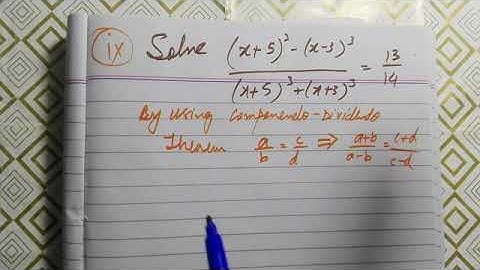 ix Solve ((x+5)³-(x-3)³)/((x+5)³+(x+3)³) = 13/14
By using Componendo-Dividendo
Theorem a/b = c/d ⇒ (a+b)/(a-b) = (c+d)/(c-d)